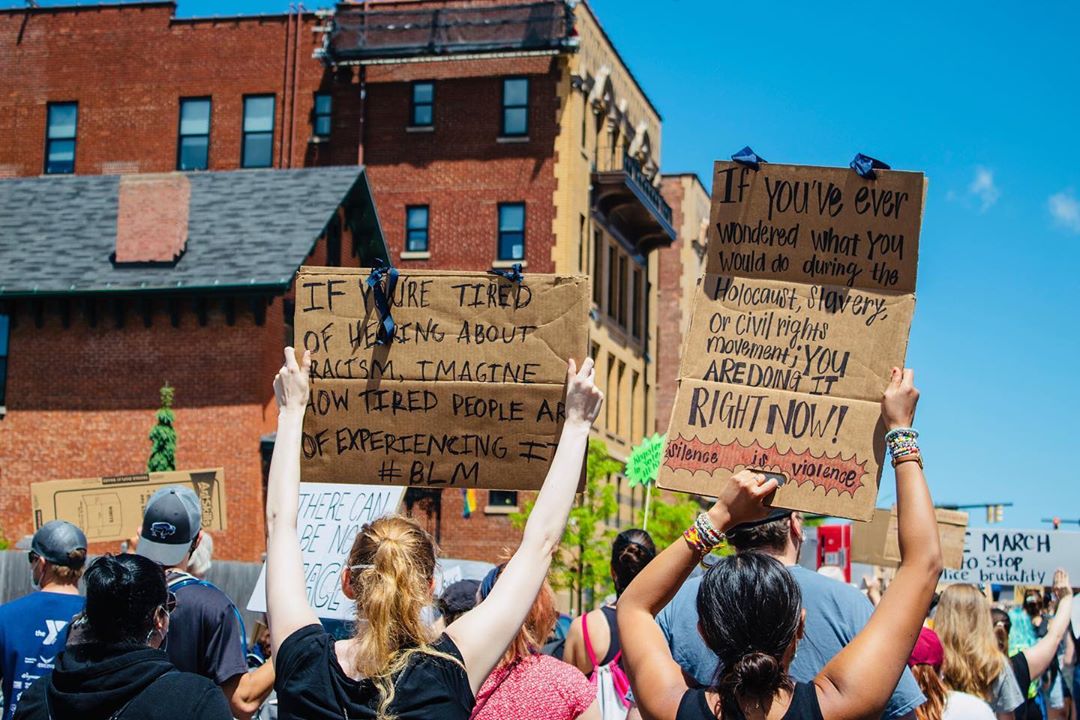 IF YOU'RE TIRED
OF HEARING ABOUT
RACISM, IMAGINE
HOW TIRED PEOPLE AR
OF EXPERIENCING IT
#BLM
If you've ever
wondered what you
would do during the
Holocaust, slavery,
or civil rights
movement; YOU
ARE DOING IT
RIGHT NOW!
silence is violence
THERE CAN
BE NO
E MARCH
TO STOP
lice brutality
Y